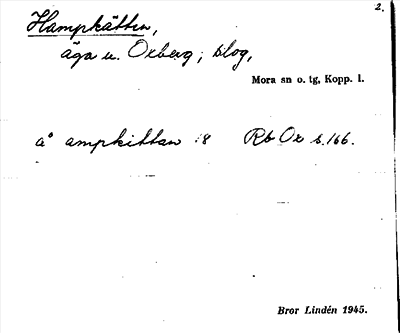 2.
Hampkätten,
äga u. Oxberg; skog,
Mora sn o. tg, Kopp. l.
a° ampkittan 18 Rb Ox s.166.
Bror Lindén 1945.